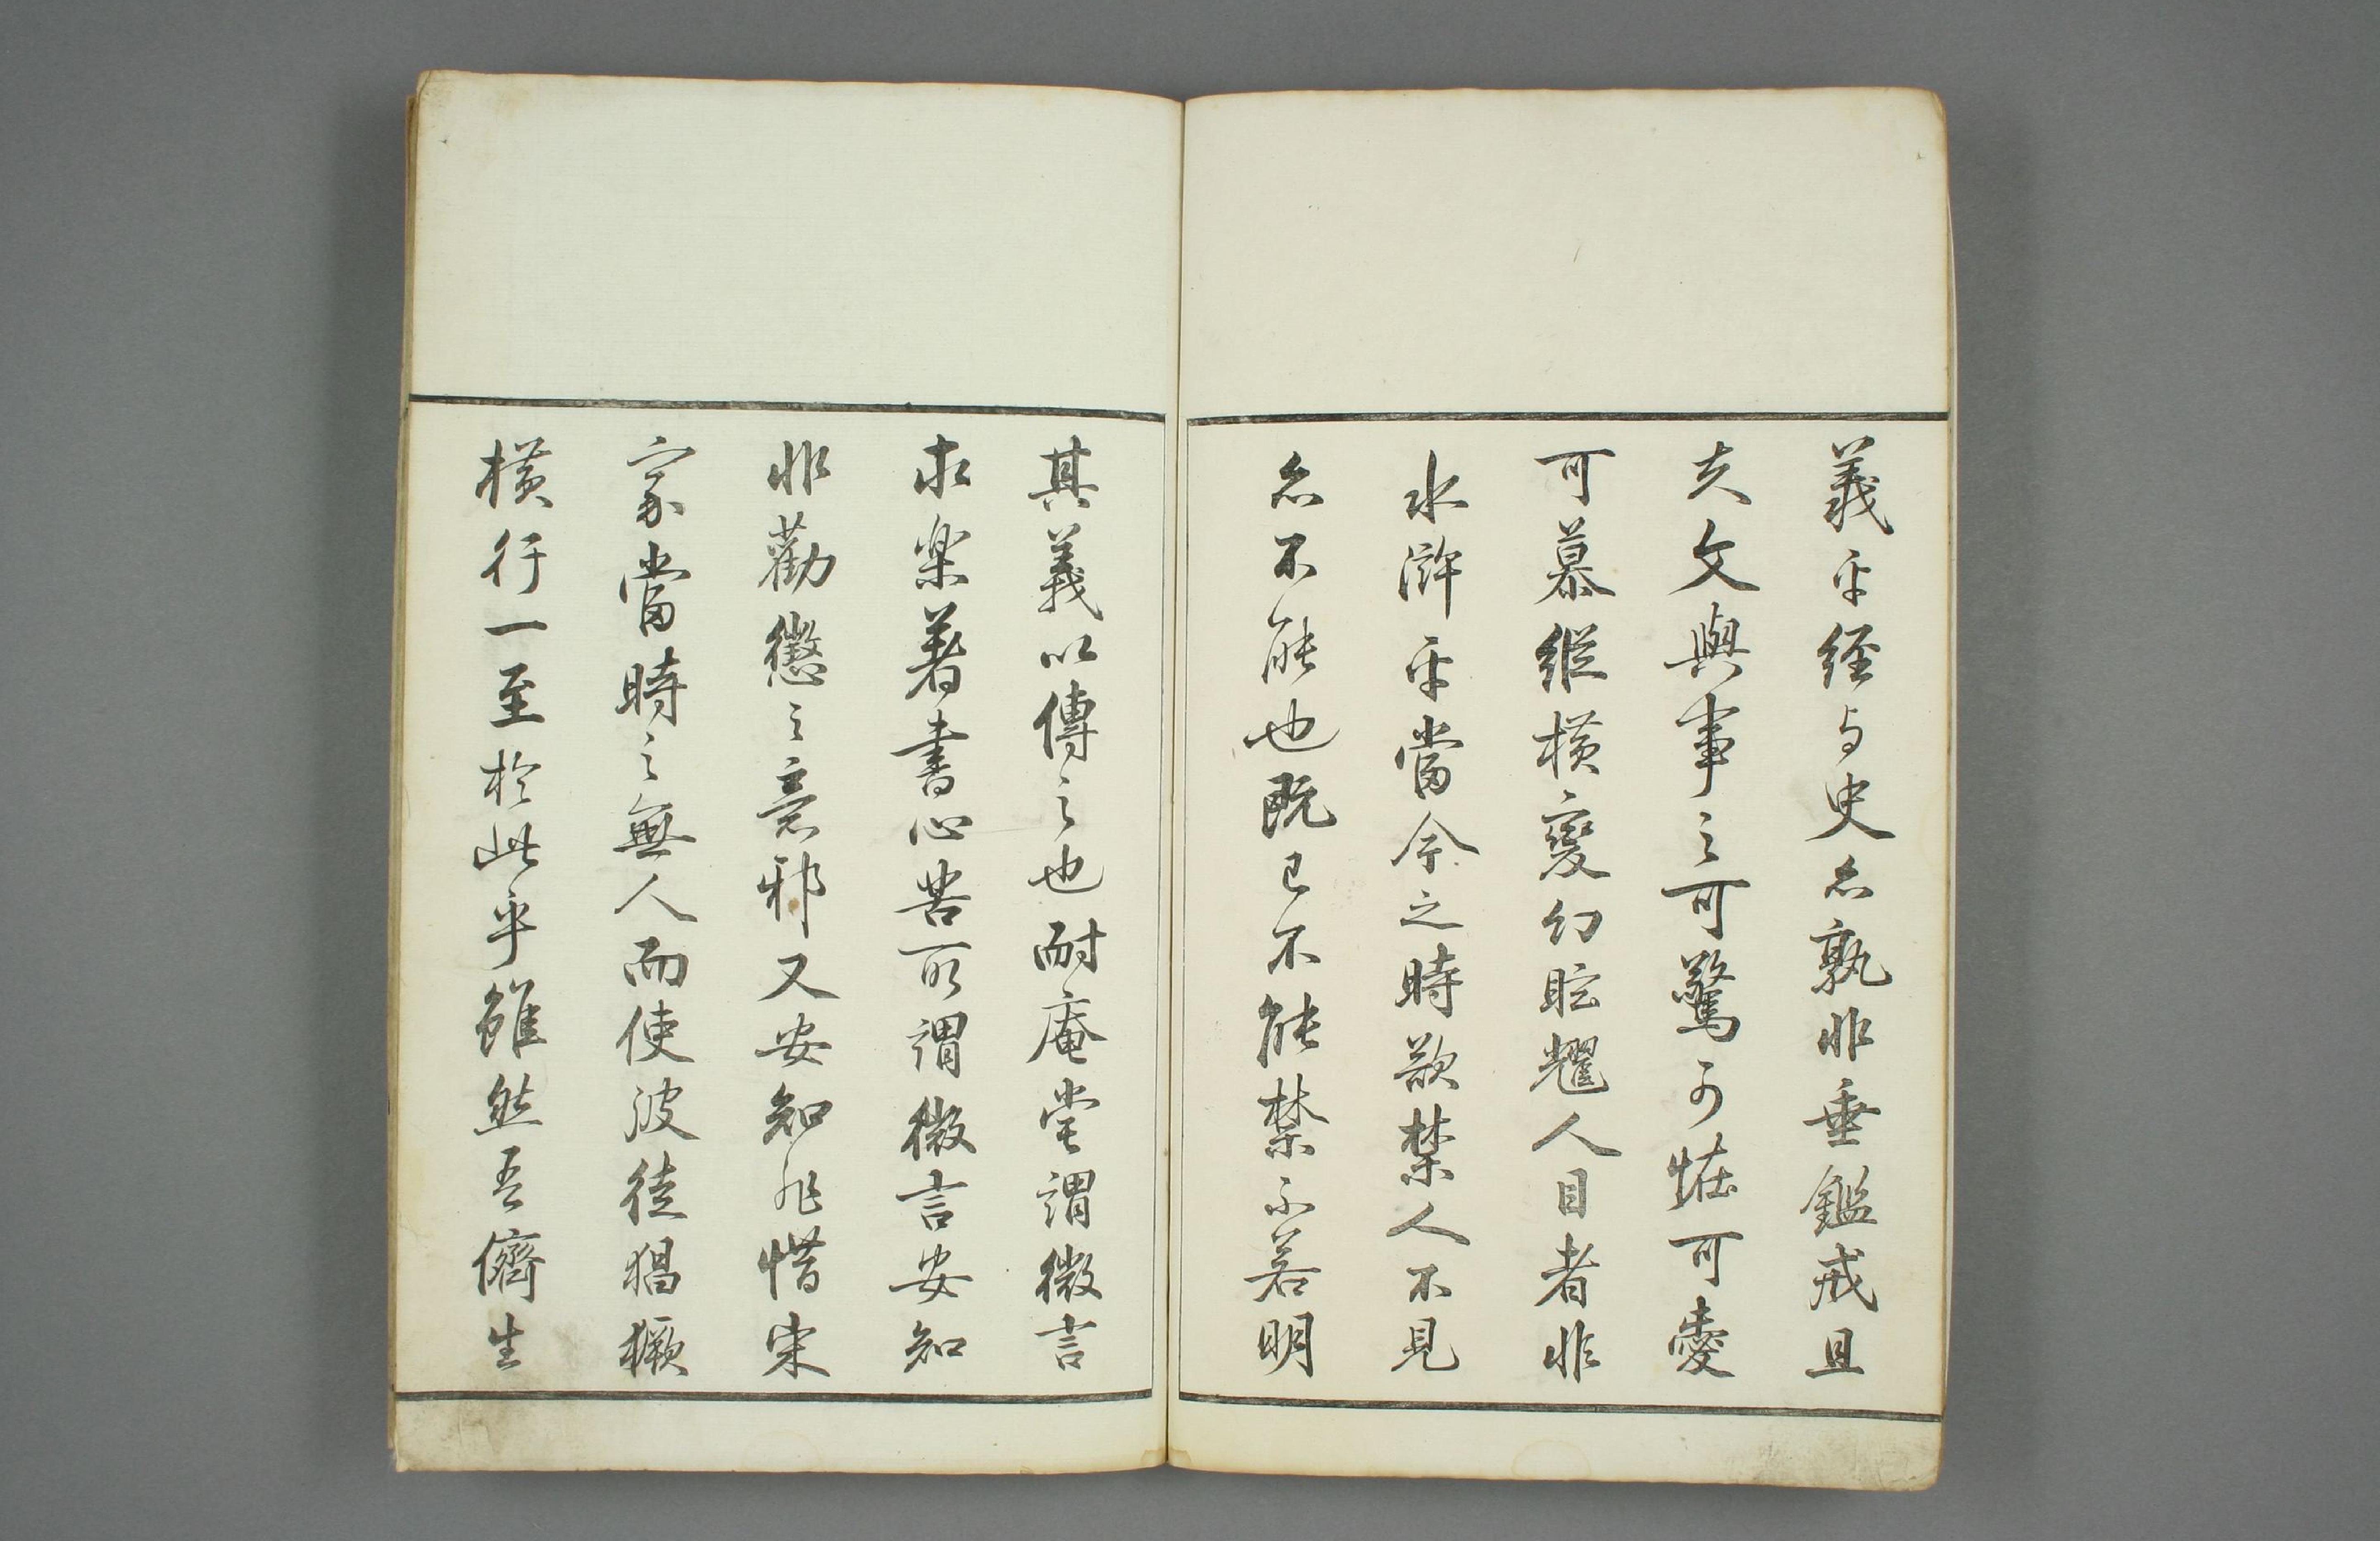 義乎経与史亦孰非垂鑑戒且
夫文與事之可驚可恠可愛
可慕縦横変幻眩耀人目者非
水滸乎當今之時欲禁人不見
亦不能也既已不能禁不若明
其義以傳之也耐庵嘗謂微言
求楽著書心苦所謂微言安知
非勸懲之意邪又安知非惜宋
家當時之無人而使彼徒猖獗
横行一至於此乎雖然吾儕生